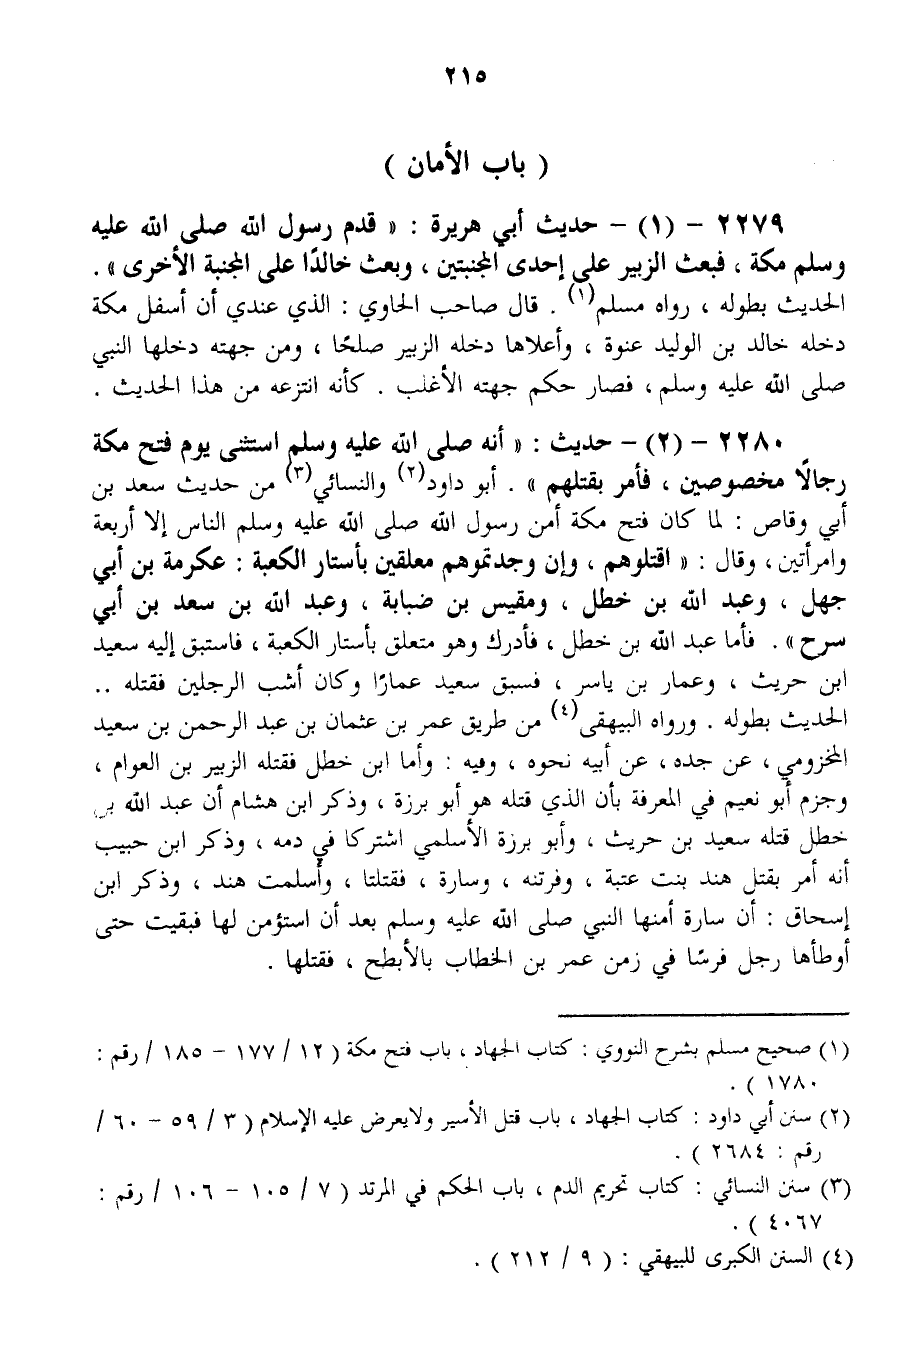 ٢١٥
( باب الأمان )
٢٢٧٩ – (١) – حديث أبي هريرة : « قدم رسول الله صلى الله عليه
وسلم مكة ، فبعث الزبير على إحدى المجنبتين ، وبعث خالدًا على المجنبة الأخرى » .
الحديث بطوله ، رواه مسلم(١) . قال صاحب الحاوي : الذي عندي أن أسفل مكة
دخله خالد بن الوليد عنوة ، وأعلاها دخله الزبير صلحًا ، ومن جهته دخلها النبي
صلى الله عليه وسلم ، فصار حكم جهته الأغلب . كأنه انتزعه من هذا الحديث .
٢٢٨٠ – (٢) – حديث : « أنه صلى الله عليه وسلم استثنى يوم فتح مكة
رجالًا مخصوصين ، فأمر بقتلهم » . أبو داود(٢) والنسائي(٣) من حديث سعد بن
أبي وقاص : لما كان فتح مكة أمن رسول الله صلى الله عليه وسلم الناس إلا أربعة
وامرأتين ، وقال : « اقتلوهم ، وإن وجدتموهم معلقين بأستار الكعبة : عكرمة بن أبي
جهل ، وعبد الله بن خطل ، ومقيس بن ضبابة ، وعبد الله بن سعد بن أبي
سرح » . فأما عبد الله بن خطل ، فأدرك وهو متعلق بأستار الكعبة ، فاستبق إليه سعيد
ابن حريث ، وعمار بن ياسر ، فسبق سعيد عمارًا وكان أشب الرجلين فقتله ..
الحديث بطوله . ورواه البيهقي(٤) من طريق عمر بن عثمان بن عبد الرحمن بن سعيد
المخزومي ، عن جده ، عن أبيه نحوه ، وفيه : وأما ابن خطل فقتله الزبير بن العوام ،
وجزم أبو نعيم في المعرفة بأن الذي قتله هو أبو برزة ، وذكر ابن هشام أن عبد الله بن
خطل قتله سعيد بن حريث ، وأبو برزة الأسلمي اشتركا في دمه ، وذكر ابن حبيب
أنه أمر بقتل هند بنت عتبة ، وفرتنه ، وسارة ، فقتلتا ، وأسلمت هند ، وذكر ابن
إسحاق : أن سارة أمنها النبي صلى الله عليه وسلم بعد أن استؤمن لها فبقيت حتى
أوطأها رجل فرسًا في زمن عمر بن الخطاب بالأبطح ، فقتلها .
(١) صحيح مسلم بشرح النووي : كتاب الجهاد ، باب فتح مكة ( ١٢ / ١٧٧ – ١٨٥ / رقم :
١٧٨٠ ) .
(٢) سنن أبي داود : كتاب الجهاد ، باب قتل الأسير ولايعرض عليه الإسلام ( ٣ / ٥٩ – ٦٠ /
رقم : ٢٦٨٤ ) .
(٣) سنن النسائي : كتاب تحريم الدم ، باب الحكم في المرتد ( ٧ / ١٠٥ – ١٠٦ / رقم :
٤٠٦٧ ) .
(٤) السنن الكبرى للبيهقي : ( ٩ / ٢١٢ ) .